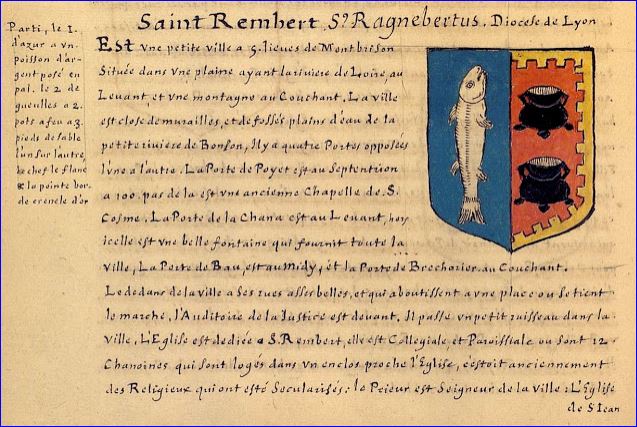 Saint Rembert S.ᵗ Ragnebertus. Diocese de Lyon
Parti, le 1.
d'azur a vn
poisson d'ar-
gent posé en
pal. le 2 de
gueulles a 2.
pots a feu a 3.
pieds de sable
l'un sur l'autre,
le chef le flanc
& la pointe bor.
de crenelé d'or
Est vne petite ville a 5. lieues de Montbrison
Située dans vne plaine ayant la riuiere de Loire, au
Leuant, et vne montagne au Couchant. La ville
est close de murailles, et de fossés plains d'eau de la
petite riuiere de Bonson, Il y a quatre Portes opposées
l'vne a l'autre. La Porte de Poyet est au Septentrion
a 100. pas de la est vne ancienne Chapelle de S.
Cosme. La Porte de la Chana est au Leuant, hors
icelle est vne belle fontaine qui fournit toute la
ville, La Porte de Bau, est au midy, et la Porte de Brechorier. au Couchant.
Le dedans de la ville a ses rues asses belles, et qui aboutissent a vne place ou se tient
le marché, l'Auditoire de la Justice est deuant. Il passe vn petit ruisseau dans la
ville, L'Eglise est dediée a S. Rembert, elle est Collegiale, et Paroissiale ou sont 12
Chanoines qui sont logés dans vn enclos proche l'Eglise, c'estoit anciennement
des Religieux qui ont esté Secularisés: le Prieur est Seigneur de la ville: L'Eglise
de S.t Jean